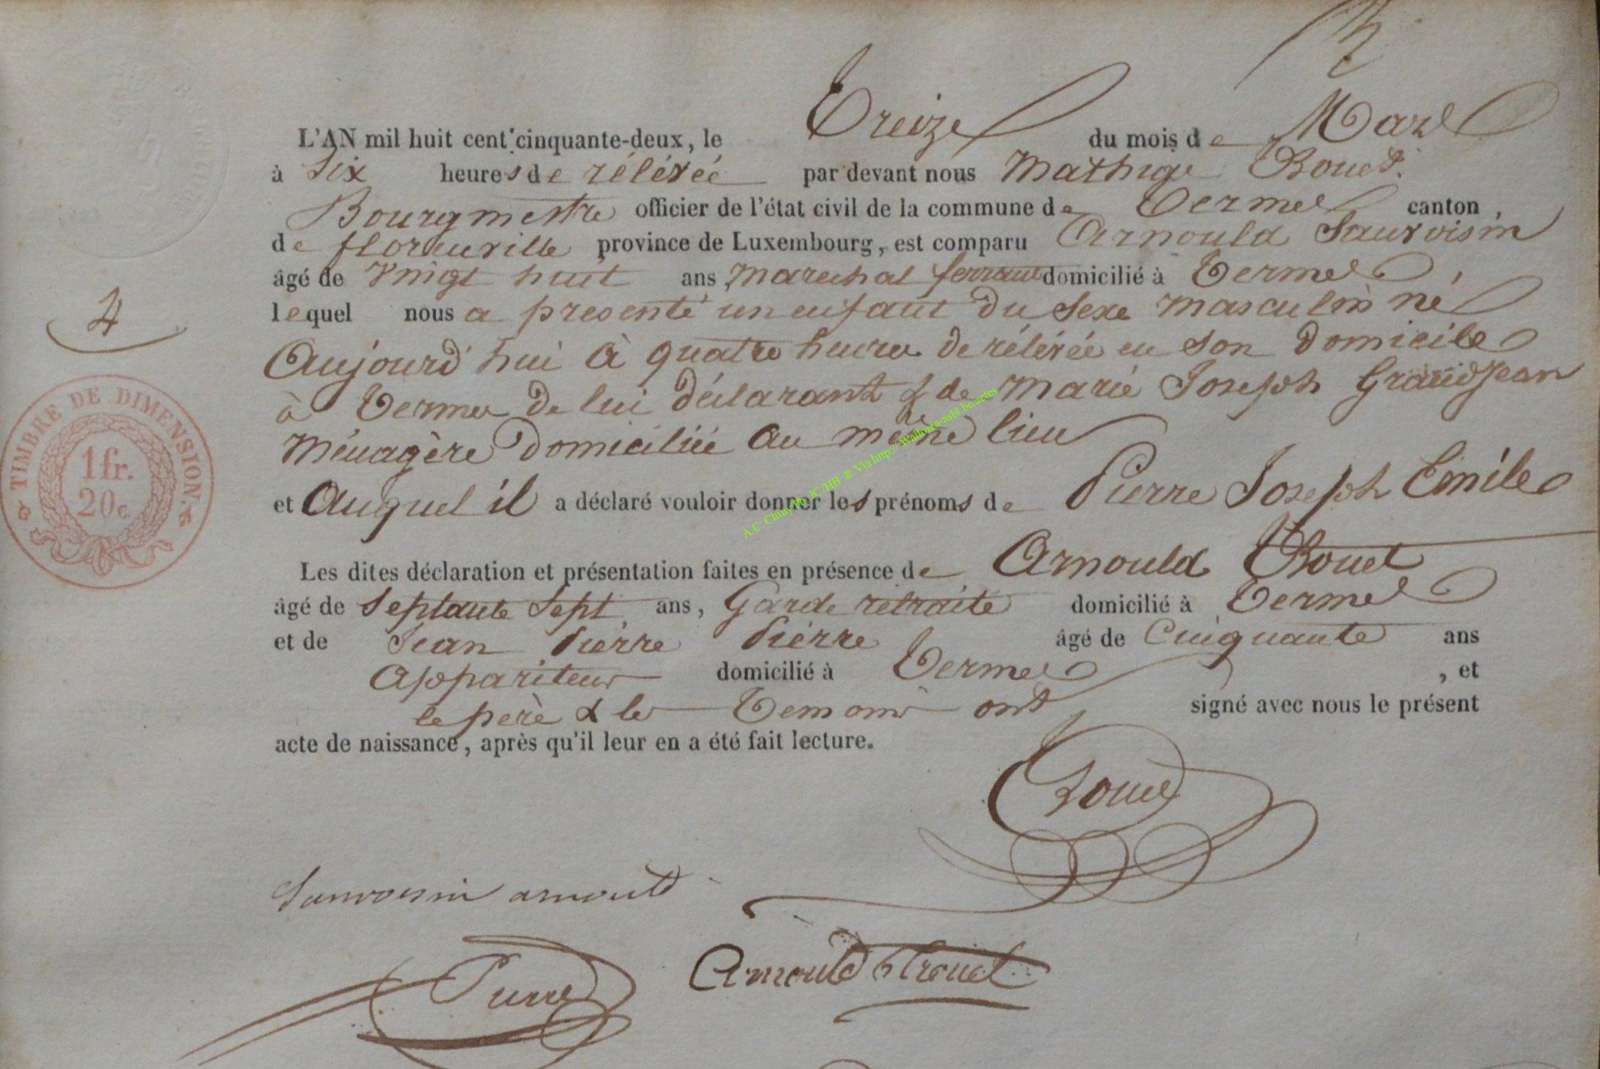 L'AN mil huit cent cinquante-deux, le Treize du mois de Mars
à Six heures de rélévée par devant nous Mathige Rouet
Bourgmestre officier de l'état civil de la commune de Termes canton
de florenville province de Luxembourg, est comparu Arnould Sauvoisin
âgé de Vingt huit ans, marechal ferrant domicilié à Termes
lequel nous a presenté un enfant du sexe masculin né
Aujourd'hui à quatre heures de rélévée en son domicile
à Termes de lui déclarant & de Marie Joseph Grandjean
Ménagère domiciliée au même lieu
et Auquel il a déclaré vouloir donner les prénoms de Pierre Joseph Emile
4
TIMBRE DE DIMENSION.
1 fr.
20 c.
Les dites déclaration et présentation faites en présence de Arnould Rouet
âgé de Septante Sept ans, Garde retraité domicilié à Termes
et de Jean Pierre Pierre âgé de Cinquante ans
Appariteur domicilié à Termes, et
le père & les Temoins ont signé avec nous le présent
acte de naissance, après qu'il leur en a été fait lecture.
Rouet
Sauvoisin arnould
Pierre
Arnould Rouet